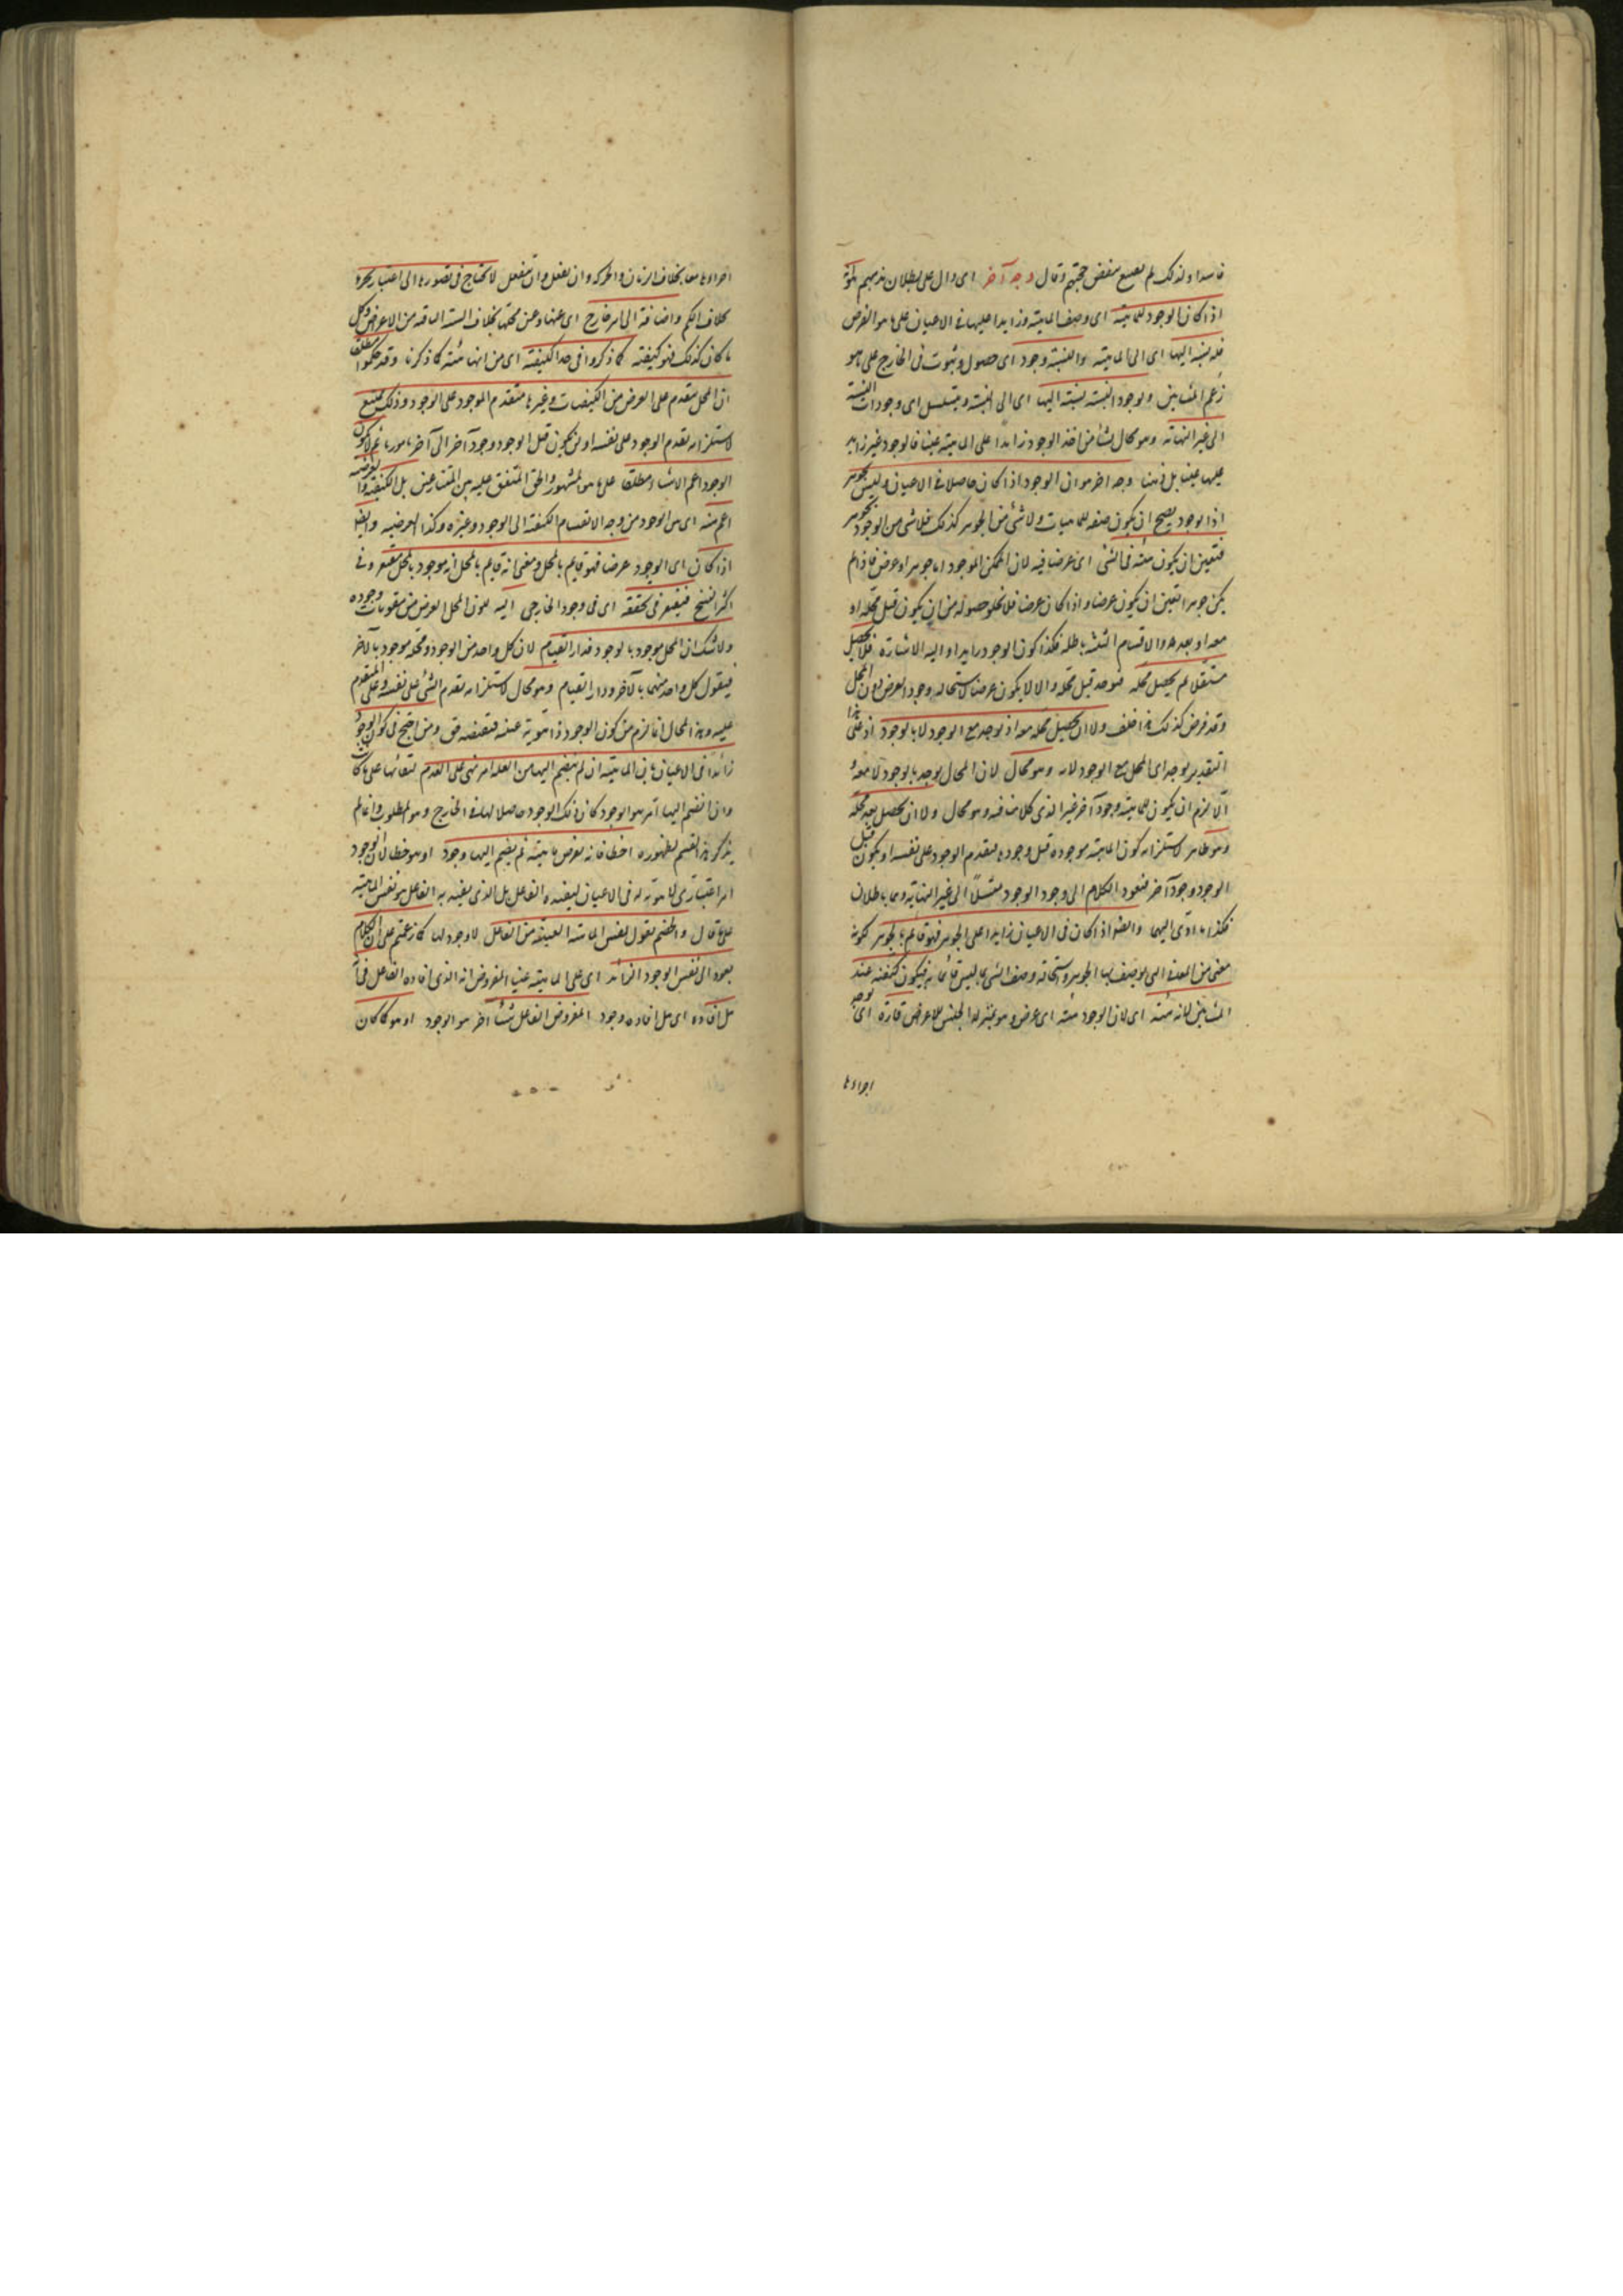 فاسدا ولذلك لم يصرح بنقض حجتهم وقال وجه آخر اى دال على بطلان مذهبهم هو
اذا كان الوجود للماهية اى وصف الماهية وزايدا عليها فى الاعيان على ما هو الفرض
فله نسبة اليها اى الى الماهية وللنسبة وجود اى حصول وثبوت فى الخارج على ما هو
زعم المشائين ولوجود النسبة نسبة اليها اى الى النسبة ويتسلسل اى وجودات النسبة
الى غير النهاية وهو محال نشأ من اخذ الوجود زايدا على الماهية عينا فالوجود غير زايد
عليها عينا بل ذهنا وجه اخر هو ان الوجود اذا كان حاصلا فى الاعيان وليس بجوهر
اذ الوجود يصح ان يكون صفة للماهيات ولا شئ من الجوهر كذلك فلا شئ من الوجود بجوهر
فتعين ان يكون هيئة فى الشئ اى عرضا فيه لان الممكن الموجود اما جوهر او عرض فاذا لم
يكن جوهرا تعين ان يكون عرضا واذا كان عرضا فلا يخلو حصوله من ان يكون قبل محله او
معه او بعده والاقسام الثلثة باطلة فكذا كون الوجود زايدا واليه الاشارة فلا يحصل
مستقلا ثم يحصل محله فيوجد قبل محله والا لا يكون عرضا لاستحالة وجود العرض دون المحل
وقد فرض كذلك هذا خلف ولا ان يحصل محله معه اذ يوجد مع الوجود لا بالوجود اذ على هذا
التقدير يوجد اى المحل مع الوجود وهو محال لان المحال يوجد بالوجود لا معه و
الا لزم ان يكون للماهية وجود آخر غير الذى كلامنا فيه وهو محال ولا ان يحصل بعد محله
وهو ظاهر لاستلزامه كون الماهية موجودة قبل وجودها فيتقدم الوجود على نفسه او يكون قبل
الوجود وجود آخر فيعود الكلام الى وجود الوجود متسلسلا الى غير النهاية وهما باطلان
فكذا ما ادى اليهما وايضا اذا كان فى الاعيان زايدا على الجوهر فهو قائم بالجوهر لكونه
معنى من المعانى التى يوصف بها الجوهر واستحالة وصف الشئ بما ليس قائما به فيكون كيفية عند
المشائين لانه هيئة اى لان الوجود هيئة اى عرض وهو بمنزلة الجنس للاعراض قارة اى يوجد
اجزاءها
اجزاءها معا بخلاف الزمان والحركة وان يفعل وان ينفعل لا يحتاج فى تصورها الى اعتبار تجزء
بخلاف الكم واضافة الى امر خارج اى عنها وعن محلها بخلاف الستة الباقية من الاعراض وكل
ما كان كذلك فهو كيفية كما ذكروا فى حد الكيفية اى من انها هيئة كما ذكرنا وقد حكموا مطلقا
ان المحل يتقدم على العرض من الكيفيات وغيرها فيتقدم الموجود على الوجود وذلك ممتنع
لاستلزامه تقدم الوجود على نفسه او ان يكون قبل الوجود وجود آخر الى آخر ما مر ثم لا يكون
الوجود اعم الاشياء مطلقا على ما هو المشهور والحق المتفق عليه بين المتنازعين بل الكيفية والعرضية
اعم منه اى من الوجود من وجه لانقسام الكيفية الى الوجود وغيره وكذا العرضية وايضا
اذا كان اى الوجود عرضا فهو قايم بالمحل ومعنى انه قايم بالمحل انه موجود بالمحل مفتقر وفى
اكثر النسخ فيفتقر فى تحققه اى فى وجوده الخارجى اليه لكون المحل العرض من مقومات وجوده
ولا شك ان المحل موجود بالوجود فدار القيام لان كل واحد من الوجود ومحله موجود بالآخر
فيتقوم كل واحد منهما بالآخر ودار القيام وهو محال لاستلزامه تقدم الشئ على نفسه وعلى المتقدم
عليه وهذا المحال انما لزم من كون الوجود ذا هوية عينية فنقيضه حق ومن احتج فى كون الوجود
زائدا فى الاعيان بان الماهية ان لم ينضم اليها من العلة امر فهى على العدم لبقائها على ما كانت
وان انضم اليها امر هو الوجود كان ذلك الوجود حاصلا لها فى الخارج وهو المطلوب وانما لم
يذكر هذا القسم لظهوره اخطا فانه يفرض ماهية ثم يضم اليها وجود او هو خطا لان الوجود
امر اعتبارى لا هوية له فى الاعيان ليفيده الفاعل بل الذى يفيده الفاعل هو نفس الماهية
على ما قال والخصم يقول نفس الماهية العينية من الفاعل لا وجود لها كما زعمتم على ان الكلام
يعود الى نفس الوجود الزائد اى على الماهية عينا المفروض انه الذى افاده الفاعل فى انه
هل افاده اى هل افاده وجود المفروض الفاعل شيئا اخر هو الوجود او هو كما كان